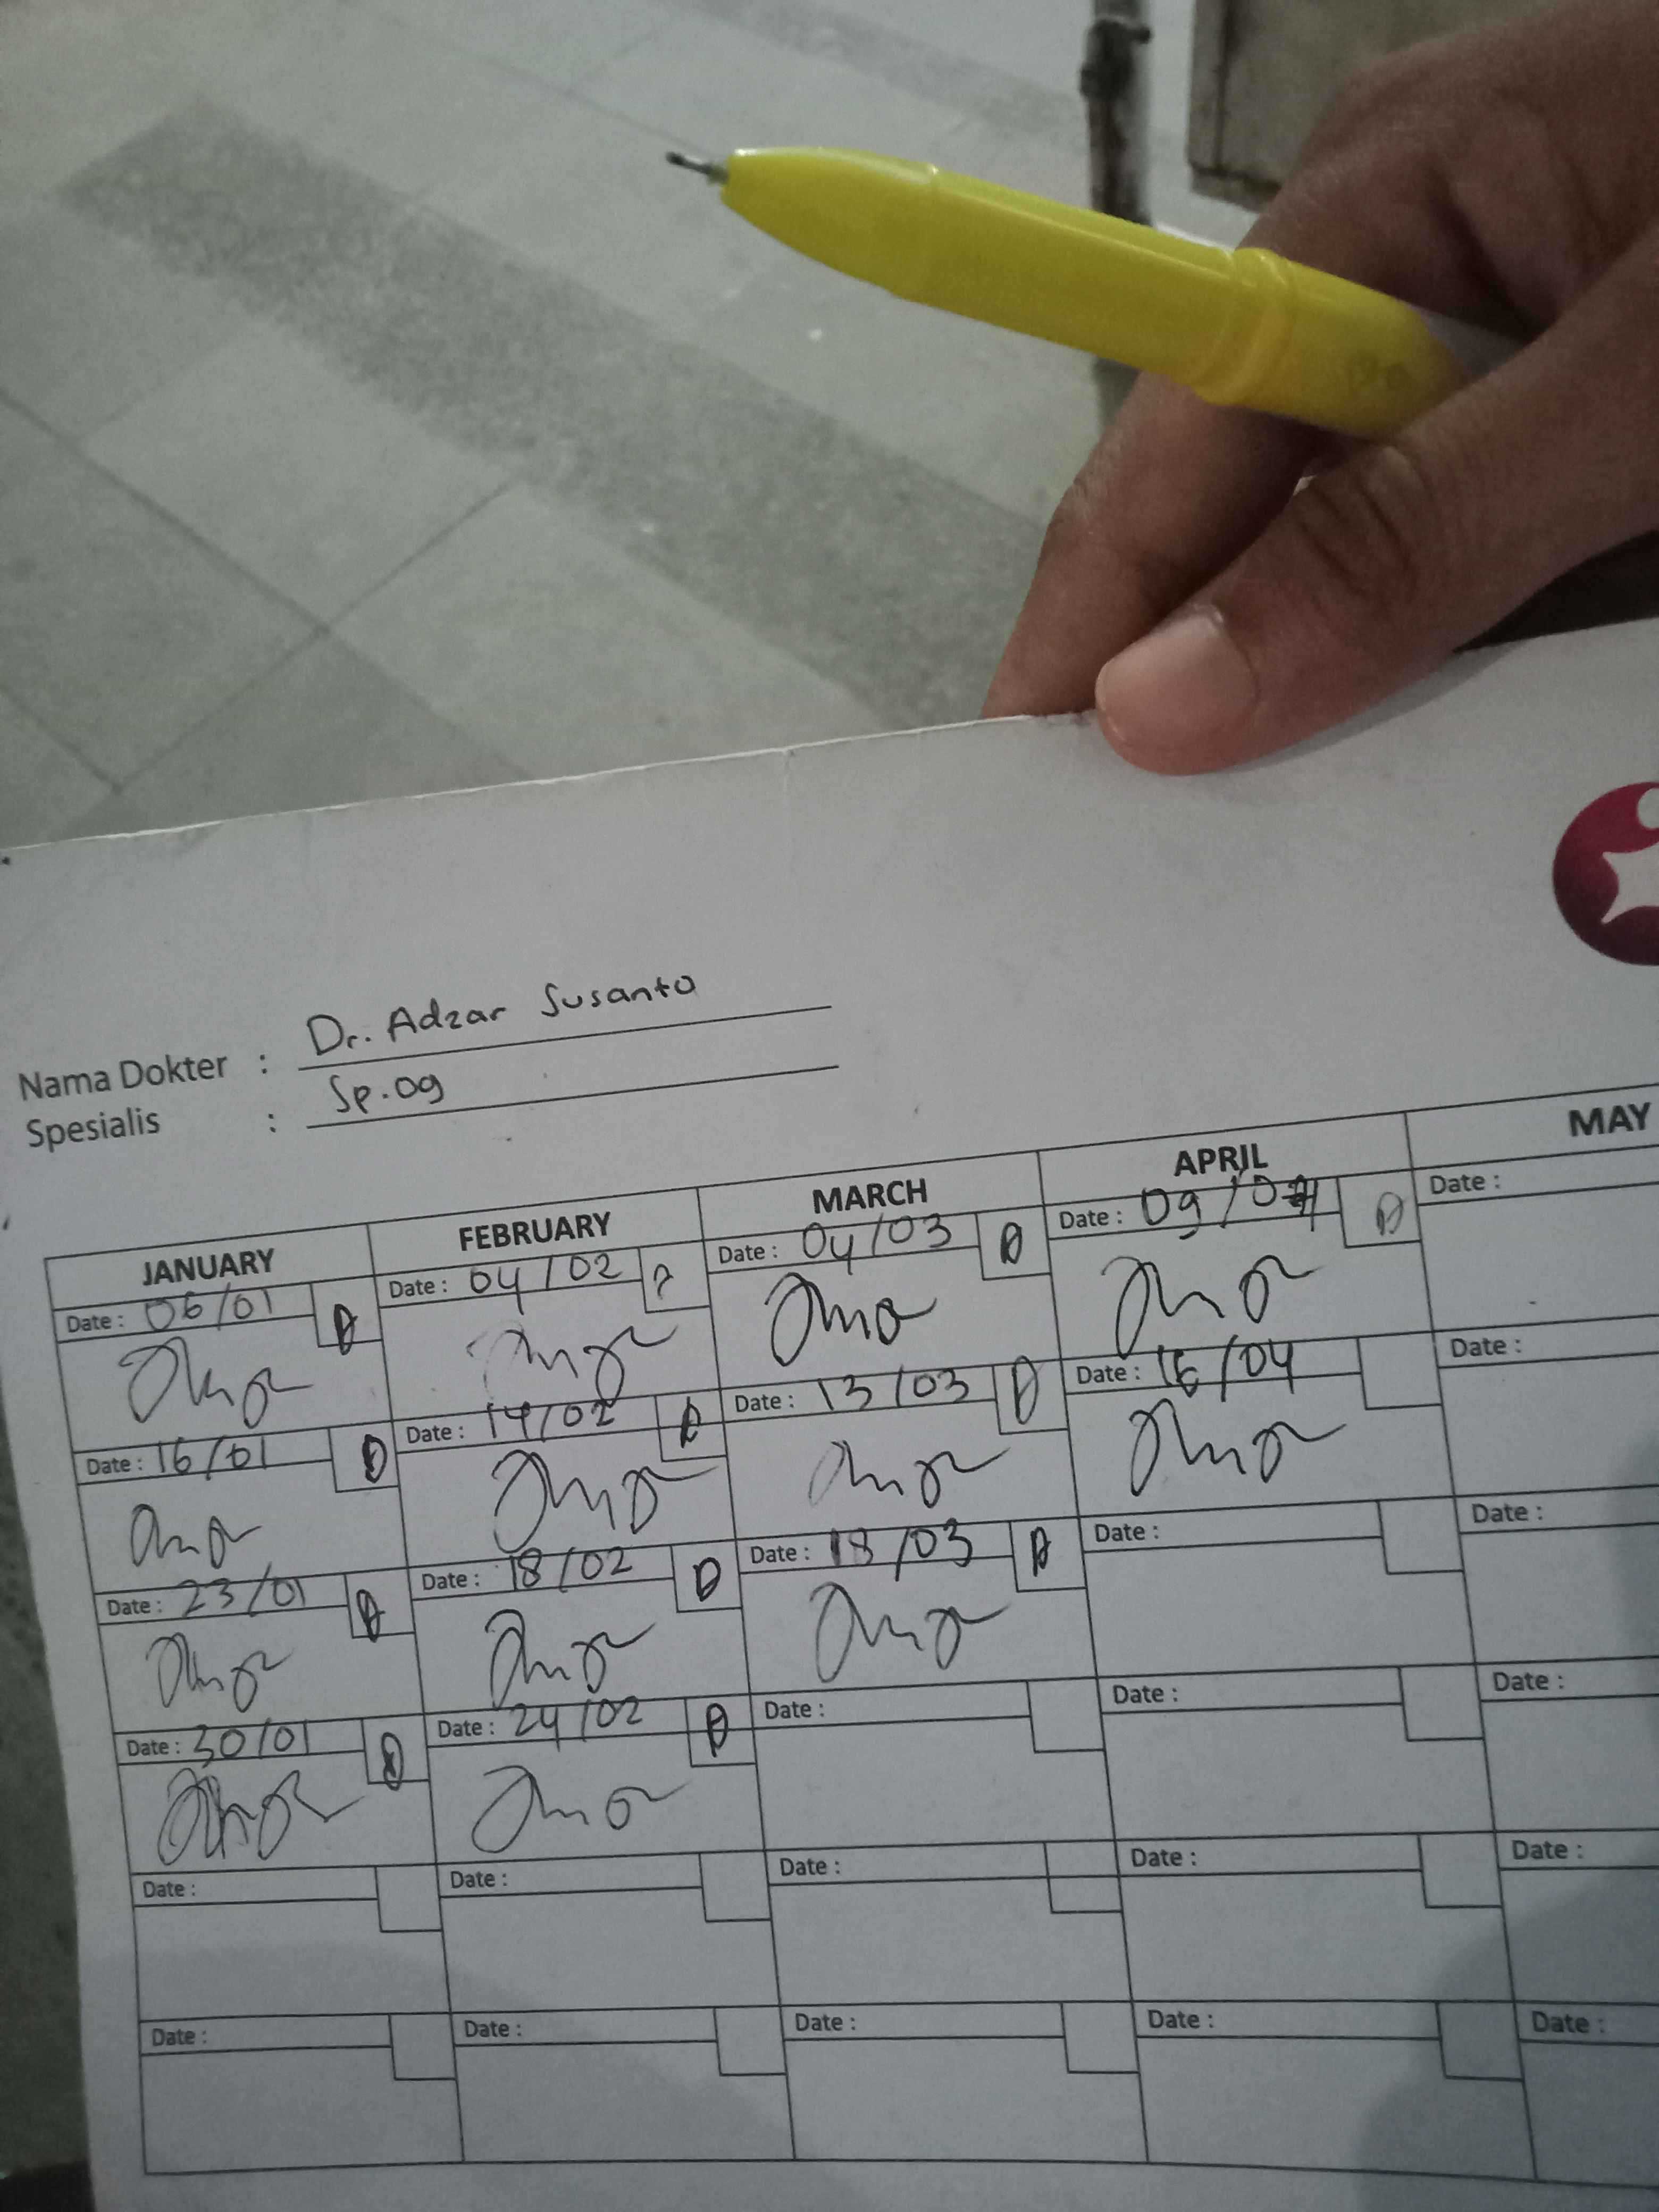 Nama Dokter : Dr. Adzar Susanto
Spesialis : Sp.og
JANUARY FEBRUARY MARCH APRIL MAY
Date : 06/01 Date : 04/02 Date : 04/03 Date : 09/04 Date :
Date : 16/01 Date : 14/02 Date : 13/03 Date : 16/04 Date :
Date : 23/01 Date : 18/02 Date : 18/03 Date : Date :
Date : 30/01 Date : 24/02 Date : Date : Date :
Date : Date : Date : Date : Date :
Date : Date : Date : Date : Date :